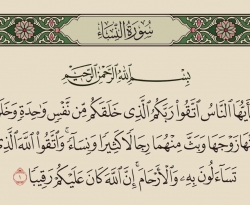 سُورَةُ النِّسَاءِ
بِسْمِ ٱللَّهِ ٱلرَّحْمَٰنِ ٱلرَّحِيمِ
أَيُّهَا ٱلنَّاسُ ٱتَّقُوا۟ رَبَّكُمُ ٱلَّذِى خَلَقَكُم مِّن نَّفْسٍ وَٰحِدَةٍ وَخَلَ
نْهَا زَوْجَهَا وَبَثَّ مِنْهُمَا رِجَالًا كَثِيرًا وَنِسَآءً ۚ وَٱتَّقُوا۟ ٱللَّهَ ٱلَّذِ
تَسَآءَلُونَ بِهِۦ وَٱلْأَرْحَامَ ۚ إِنَّ ٱللَّهَ كَانَ عَلَيْكُمْ رَقِيبًا ١